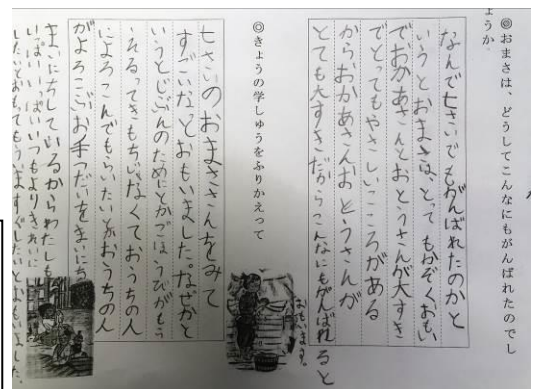 ◎おまさは、どうしてこんなにもがんばれたのでし
ょうか。
なんで七さいでもがんばれたのかと
いうとおまさは、とってもかぞくおもい
でおかあさんとおとうさんが大すき
でとってもやさしいこころがある
からおかあさんおとうさんが
とても大すきだからこんなにもがんばれると
おもいます。
◎きょうの学しゅうをふりかえって
七さいのおまささんをみて
すごいなとおもいました。なぜかと
いうとじぶんのためにとかごほうびがもら
えるってきもちじゃなくておうちの人
によろこんでもらいたいとかおうちの人
がよろこぶお手つだいをまいにち
まいにちしているからわたしも
いっぱいいっぱいいつもよりきれいに
したいとおもって